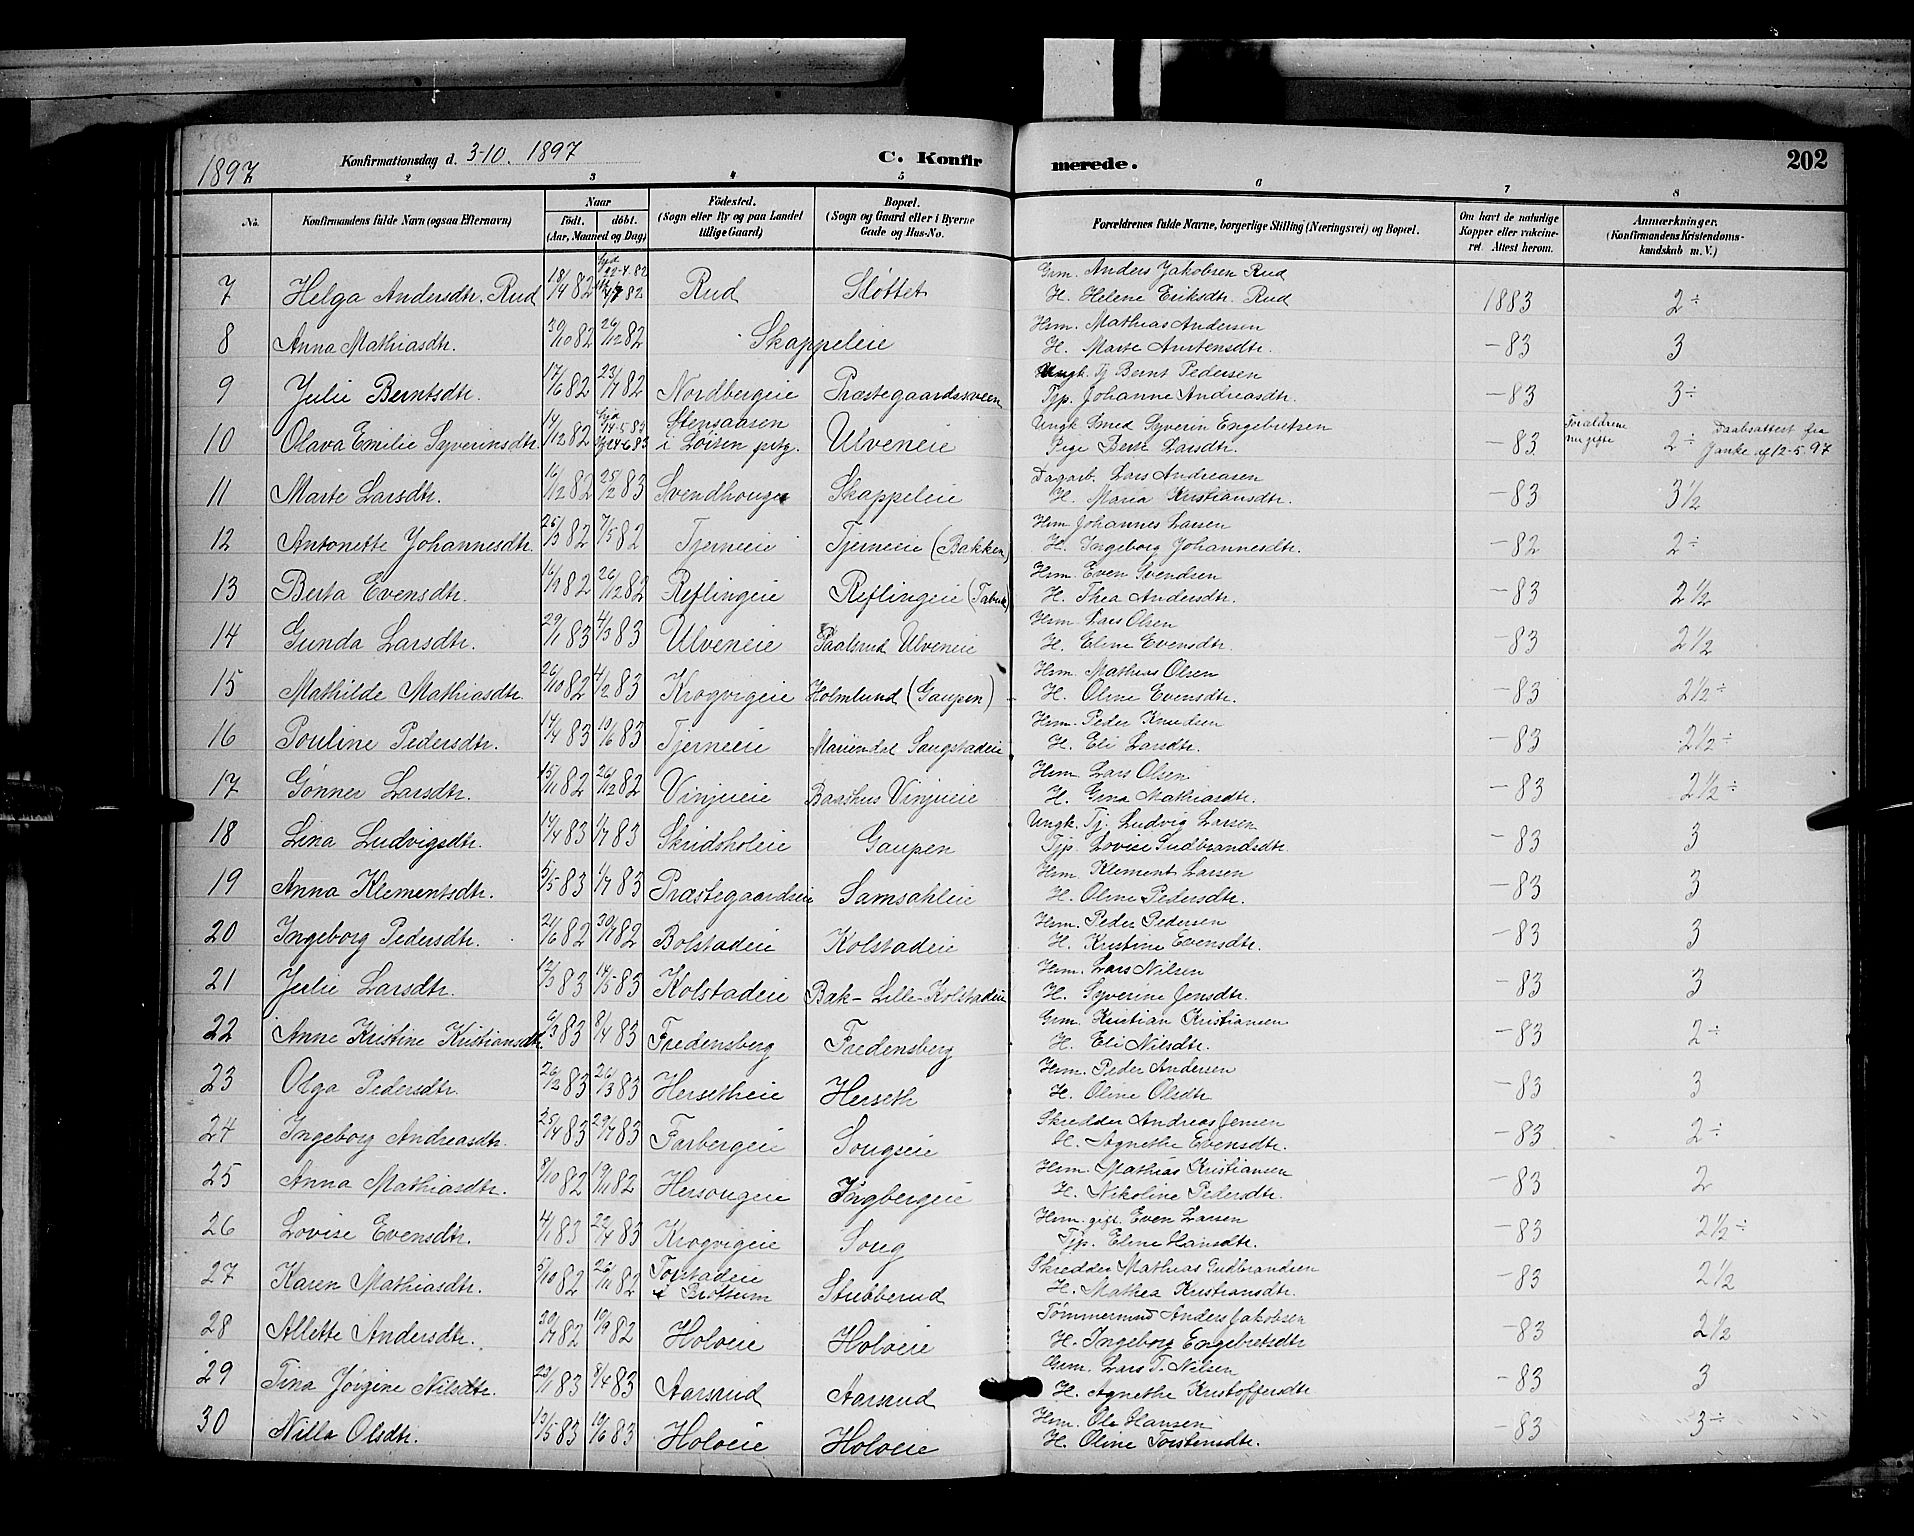 1897 Konfirmationsdag d. 3-10. 1897 C. Konfirmerede. 202
2 3 4 5 6 7 8
No. Konfirmandens fulde Navn (ogsaa Efternavn) Naar födt. döbt. (Aar, Maaned og Dag) Födested. (Sogn eller By og paa Landet tillige Gaard) Bopæl. (Sogn og Gaard eller i Byerne Gade og Hus-No. Forældrenes fulde Navne, borgerlige Stilling (Næringsvei) og Bopæl. Om havt de naturlige Kopper eller vakcineret. Attest herom. Anmærkninger. (Konfirmandens Kristendomskundskab m. V.)
7 Helga Andersdtr. Rud 18/4 82 hjd 22-4-82 82 Rud Slottet Grm. Anders Jakobsen Rud H. Helene Eriksdtr. Rud 1883 2÷
8 Anna Mathiasdtr. 30/10 82 26/12 82 Skappeleie Hrm. Mathias Andersen H. Marte Austensdtr. -83 3
9 Julie Berntsdtr. 17/6 82 23/7 82 Nordbergeie Præstegaardssveen Ungk. Tj Bernt Pedersen Tjp. Johanne Andreasdtr. -83 3÷
10 Olava Emilie Syverinsdtr. 14/12 82 hjd 14-5-83 24/6 83 Stensaasen i Löiten prtg. Ulveneie Ungk Smed Syverin Engebretsen Pige Berte Larsdtr. -83 Forældrene nu gifte 2÷ Daabsattest fra Janke af 12-5-97
11 Marte Larsdtr. 16/12 82 25/2 83 Svendhouge Skappeleie Dagarb. Lars Andreasen H. Maria Kristiansdtr. -83 3½
12 Antonette Johannesdtr. 26/3 82 7/5 82 Tjerneeie Tjerneeie (Bakken) Hrm Johannes Larsen H. Ingeborg Johannesdtr. -82 2÷
13 Berta Evensdtr. 16/9 82 26/12 82 Reflingeie Reflingeie Hrm. Even Svendsen H. Thea Andersdtr. -83 2½
14 Gunda Larsdtr. 29/1 83 4/3 83 Ulveneie Paalsrud Ulveneie Hrm Lars Olsen H. Eline Evensdtr. -83 2½
15 Mathilde Mathiasdtr. 26/10 82 4/2 83 Krogvigeie Holmlund (Gaupen) Hrm. Mathias Olsen H. Oline Evensdtr. -83 2½÷
16 Pouline Pedersdtr. 17/4 83 19/6 83 Tjerneeie Mariendal Sougstadeie Hrm. Peder Knudsen H. Eli Larsdtr. -83 2½÷
17 Gönner Larsdtr. 15/11 82 26/12 82 Vinjueie Baashus Vinjueie Hrm. Lars Olsen H. Grna Mathiasdtr. -83 2½÷
18 Lina Ludvigsdtr. 17/4 83 1/7 83 Skridsholeie Gaupen Ungk. Tj. Ludvig Larsen Tjp. Lovise Gudbrandsdtr. -83 3
19 Anna Klementsdtr. 5/5 83 1/7 83 Præstegaardseie Samsahleie Hrm Klement Larsen H. Oline Pedersdtr. -83 3
20 Ingeborg Pedersdtr. 21/6 82 30/7 82 Bolstadeie Kolstadeie Hrm. Peder Pedersen H. Kristine Evensdtr. -83 3
21 Julie Larsdtr. 12/3 83 14/5 83 Kolstadeie Bak-Lille-Kolstadeie Hrm. Lars Nilsen H. Syverine Jensdtr. -83 3
22 Anne Kristine Kristiansdtr. 6/3 83 8/4 83 Fredensberg Fredensberg Grm. Kristian Kristiansen H. Eli Nilsdtr. -83 2÷
23 Olga Pedersdtr. 26/2 83 26/3 83 Hersetheie Herseth Hrm. Peder Andersen H. Oline Olsdtr -83 3
24 Ingeborg Andreasdtr. 25/4 83 29/7 83 Farbergeie Sougseie Skredder Andreas Jensen H. Agnethe Evensdtr. -83 2÷
25 Anna Mathiasdtr. 8/10 82 19/11 82 Hersougeie Ingbergeie Hrm. Mathias Kristiansen H. Nikoline Pedersdtr. -83 2
26 Lovise Evensdtr. 4/1 83 22/4 83 Krogvigeie Soug Hrm. gift. Even Larsen Tjp. Eline Hansdtr. -83 2½÷
27 Karen Mathiasdtr. 5/10 82 26/11 82 Torstadeie i Brottum Stubberud Skredder Mathias Gudbrandsen H. Mathea Kristiansdtr. -83 2½
28 Allette Andersdtr. 30/7 82 10/9 82 Holoeie Holoeie Tömmermand Anders Jakobsen H. Ingeborg Engebretsdtr -83 2½
29 Tina Jörgine Nilsdtr. 23/1 83 8/4 83 Aarsrud Aarsrud Grm. Lars T. Nilsen H. Agnethe Kristoffersdtr -83 3
30 Nilla Olsdtr. 13/5 83 10/6 83 Holoeie Holoeie Hrm. Ole Hansen H. Oline Torstensdtr. -83 3÷